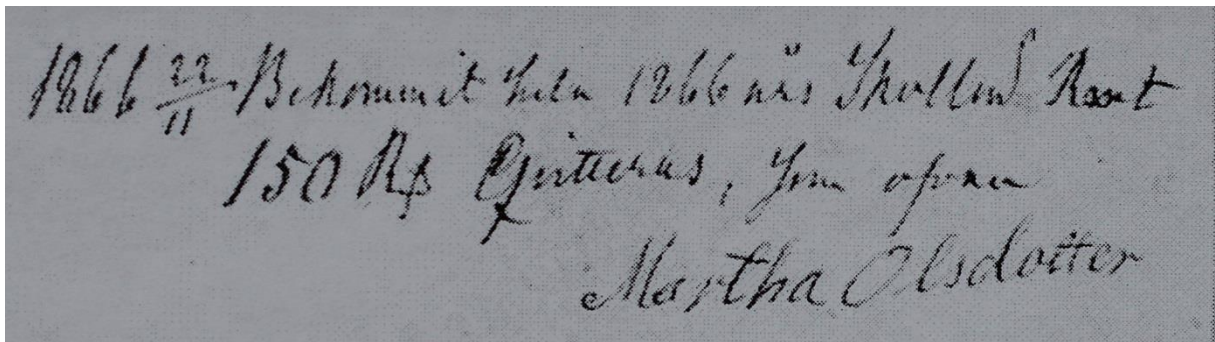 1866 22/11 Bekommit hela 1866 års Skullens Rant
150 Rß Qvitteras, Som ofvan
Martha Olsdotter